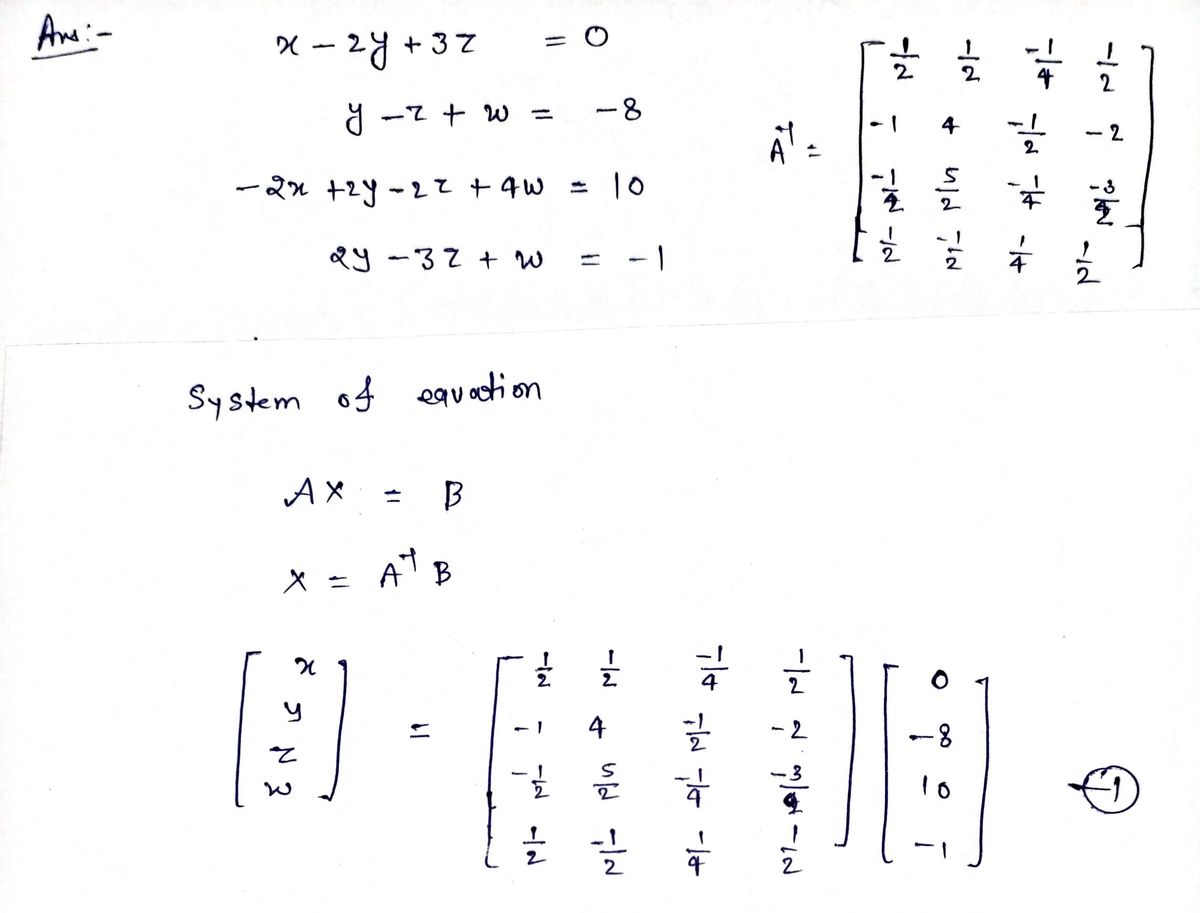 Ans:-
x - 2y + 3z = 0
y - z + w = -8
-2x + 2y - 2z + 4w = 10
2y - 3z + w = -1
A⁻¹ =
1/2 1/2 -1/4 1/2
-1 4 -1/2 -2
-1/2 5/2 -1/4 -3/2
1/2 -1/2 1/4 1/2
System of equation
AX = B
X = A⁻¹ B
x
y
z
w
=
1/2 1/2 -1/4 1/2
-1 4 -1/2 -2
-1/2 5/2 -1/4 -3/2
1/2 -1/2 1/4 1/2
0
-8
10
-1
-1